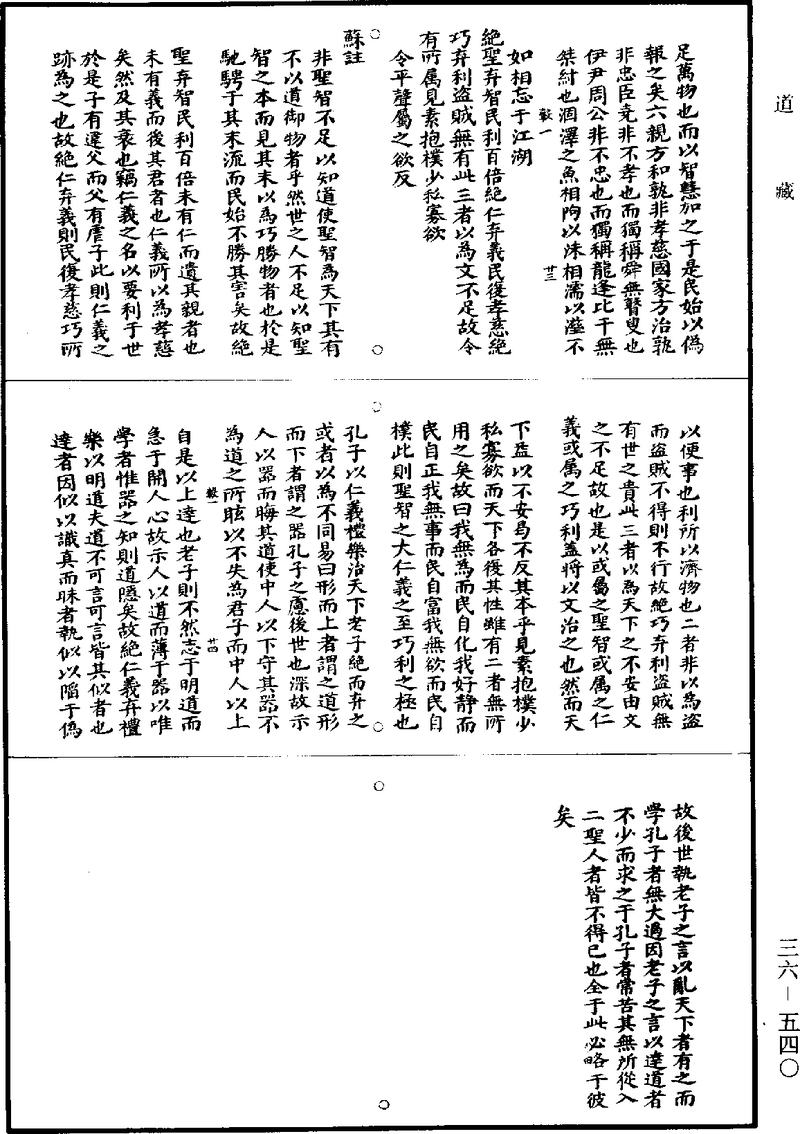 道藏
足萬物也而以智慧加之于是民始以偽
報之矣六親方和孰非孝慈國家方治孰
非忠臣堯非不孝也而獨稱舜無瞽叟也
伊尹周公非不忠也而獨稱龍逢比干無
桀紂也涸澤之魚相呴以沫相濡以溼不
㪅一
廿三
如相忘于江湖
絕聖弃智民利百倍絕仁弃義民復孝慈絕
巧弃利盜賊無有此三者以為文不足故令
有所属見素抱樸少私寡欲
令平聲屬之欲反
蘇註
非聖智不足以知道使聖智為天下其有
不以道御物者乎然世之人不足以知聖
智之本而見其末以為巧勝物者也於是
馳騁于其末流而民始不勝其害矣故絕
聖弃智民利百倍未有仁而遺其親者也
未有義而後其君者也仁義所以為孝慈
矣然及其衰也竊仁義之名以要利于世
於是子有違父而父有虐子此則仁義之
跡為之也故絕仁弃義則民復孝慈巧所
以便事也利所以濟物也二者非以為盜
而盜賊不得則不行故絕巧弃利盜賊無
有世之貴此三者以為天下之不安由文
之不足故也是以或属之聖智或属之仁
義或属之巧利盖將以文治之也然而天
下益以不安曷不反其本乎見素抱樸少
私寡欲而天下各復其性雖有三者無所
用之矣故曰我無為而民自化我好静而
民自正我無事而民自富我無欲而民自
樸此則聖智之大仁義之至巧利之極也
孔子以仁義禮樂治天下老子絕而弃之
或者以為不同易曰形而上者謂之道形
而下者謂之器孔子之慮後世也深故示
人以器而晦其道使中人以下守其器不
為道之所眩以不失為君子而中人以上
㪅一
廿四
自是以上達也老子則不然志于明道而
急于開人心故示人以道而薄于器以唯
學者惟器之知則道隱矣故絕仁義弃禮
樂以明道夫道不可言可言皆其似者也
達者因似以識真而昧者執似以陷于偽
故後世執老子之言以亂天下者有之而
學孔子者無大過因老子之言以達道者
不少而求之于孔子者常苦其無所從入
二聖人者皆不得已也全于此必略于彼
矣
三六—五四〇